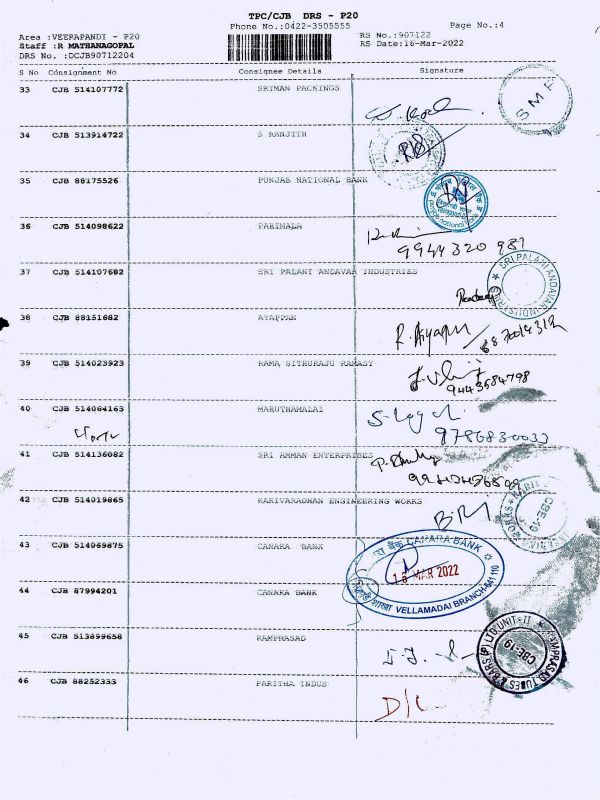 TPC/CJB DRS - P20
Phone No.:0422-3505555
Page No.:4
Area :VEERAPANDI - P20
Staff :R MATHANAGOPAL
DRS No. :DCJB90712204
RS No.:907122
RS Date:16-Mar-2022
S No Consignment No Consignee Details Signature
33 CJB 514107772 SRIMAN PACKINGS
SMF
34 CJB 513914722 S RANJITH
35 CJB 88175526 PUNJAB NATIONAL BANK
36 CJB 514098622 PARIMALA
9944320 981
37 CJB 514107682 SRI PALANI ANDAVAR INDUSTRIES
SRI PALANI ANDAVAR INDUSTRIES
38 CJB 88151682 AYYAPPAN
R. Aiyapan
39 CJB 514023923 RAMA SITHURAJU RAMASY
9443584798
40 CJB 514064163 MARUTHAMALAI
41 CJB 514136082 SRI AMMAN ENTERPRISES
42 CJB 514019865 KARIVARADHAN ENGINEERING WORKS
CBE-19
43 CJB 514069875 CANARA BANK
CANARA BANK
16 MAR 2022
VELLAMADAI BRANCH-641 110
44 CJB 87994201 CANARA BANK
45 CJB 513899658 RAMPRASAD
RAMPRASAD TUBES & BARS (P) LTD UNIT-II
CBE-19
46 CJB 88252333 PARITHA INDUS
D/L